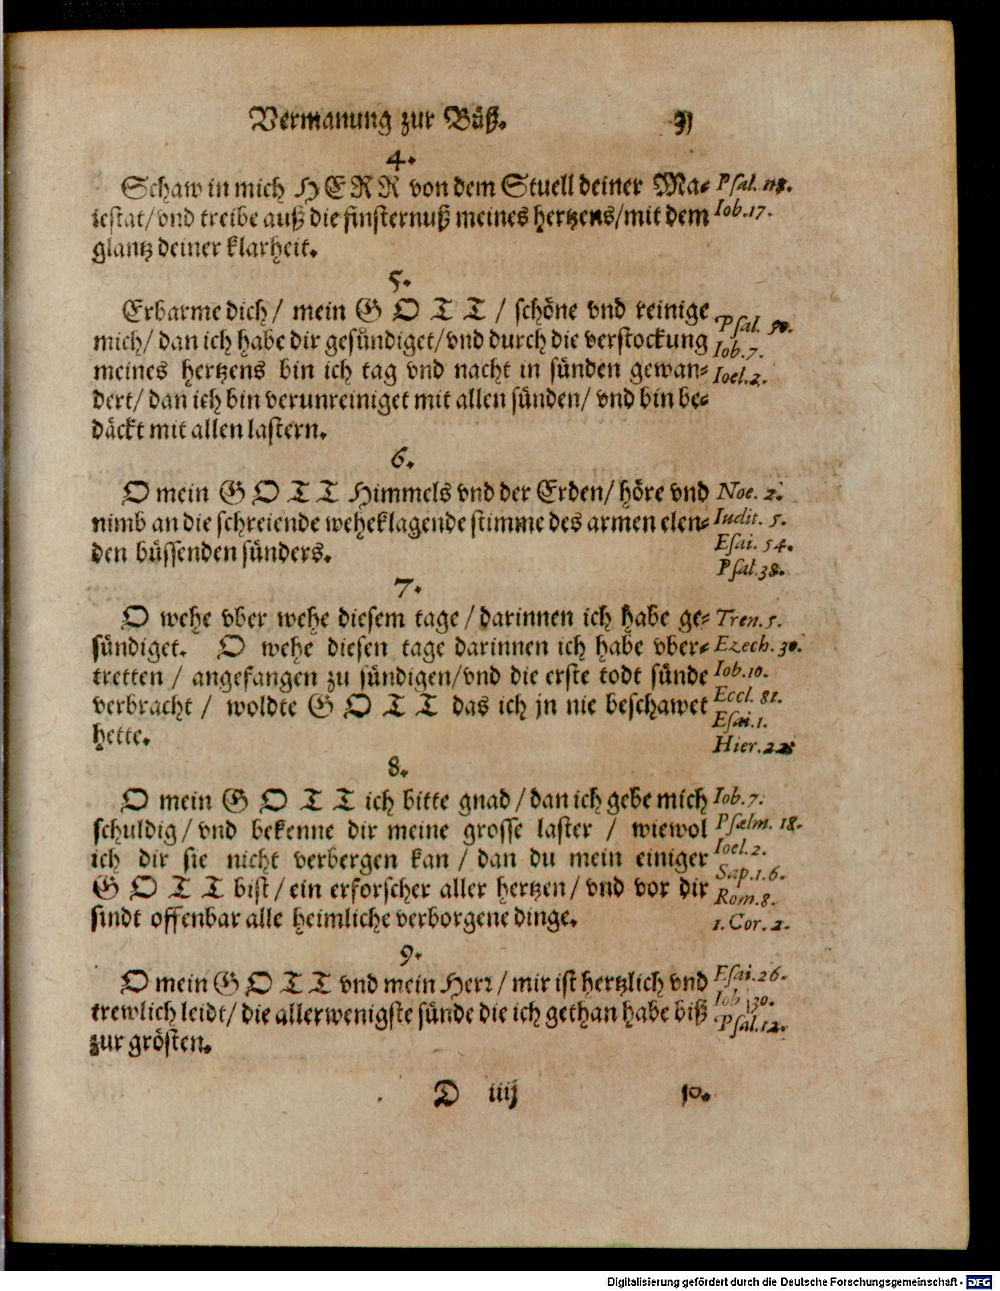 Vermanung zur Büß.
4.
Schaw in mich HERR von dem Stuell deiner Ma= Psal.
iestat/ vnd treibe auß die finsternuß meines hertzens/ mit dem Iob.17.
glantz deiner klarheit.
5.
Erbarme dich/ mein GOTT/ schöne vnd reinige Psal. 50.
mich/ dan ich habe dir gesündiget/ vnd durch die verstockung Iob.7.
meines hertzens bin ich tag vnd nacht in sünden gewan= Ioel.2.
dert/ dan ich bin verunreiniget mit allen sünden/ vnd bin be=
däckt mit allen lastern.
6.
O mein GOTT Himmels vnd der Erden/ höre vnd Noe. 2.
nimb an die schreiende weheklagende stimme des armen elen= Iudit. 5.
den büssenden sünders. Esai. 54.
Psal.38.
7.
O wehe vber wehe diesem tage/ darinnen ich habe ge= Tren.5.
sündiget. O wehe diesen tage darinnen ich habe vber= Ezech. 30.
tretten/ angefangen zu sündigen/ vnd die erste todt sünde Iob.10.
verbracht/ woldte GOTT das ich jn nie beschawet Eccl. 81.
Esai.1.
hette.
Hier.22.
8.
O mein GOTT ich bitte gnad/ dan ich gebe mich Iob.7.
schuldig/ vnd bekenne dir meine grosse laster/ wiewol Psalm. 18.
ich dir sie nicht verbergen kan/ dan du mein einiger Ioel.2.
Sap.1.6.
GOTT bist/ ein erforscher aller hertzen/ vnd vor dir Rom.8.
sindt offenbar alle heimliche verborgene dinge. 1.Cor.2.
9.
O mein GOTT vnd mein Herr/ mir ist hertzlich vnd Esai.26.
trewlich leidt/ die allerwenigste sünde die ich gethan habe biß Iob 30.
Psal.12.
zur grösten.
D iiij 10.
Digitalisierung gefördert durch die Deutsche Forschungsgemeinschaft - DFG